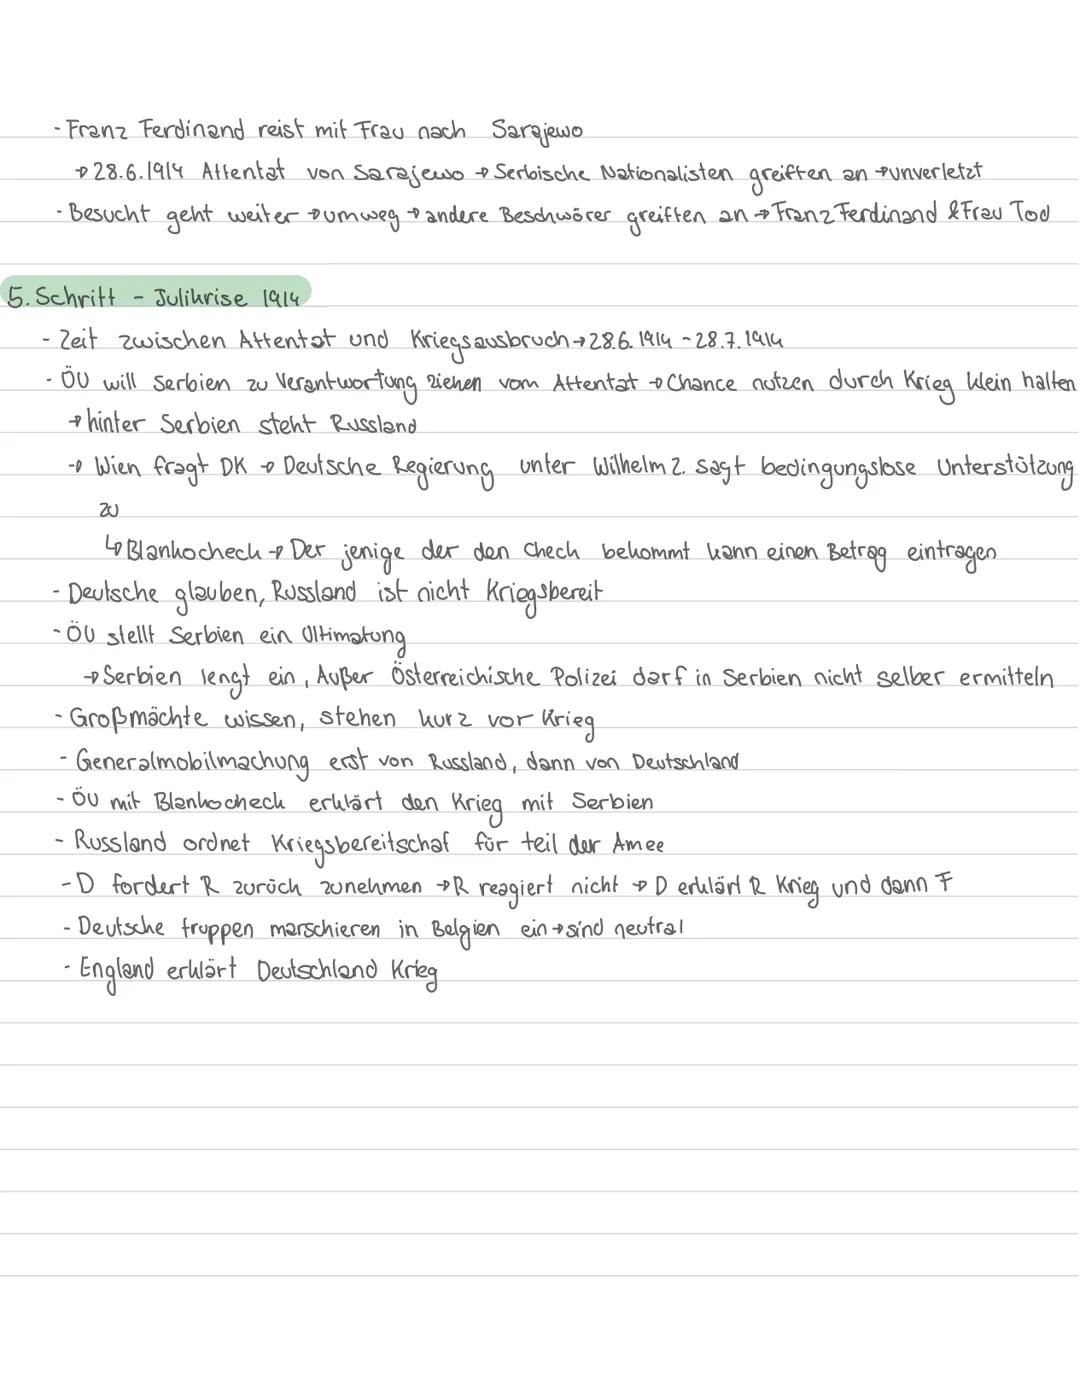 - Franz Ferdinand reist mit Frau nach Sarajewo
→ 28.6.1914 Attentat von Sarajewo → Serbische Nationalisten greiften an → unverletzt
- Besucht geht weiter → umweg → andere Beschwörer greiften an → Franz Ferdinand & Frau Tod
5. Schritt - Julikrise 1914
- Zeit zwischen Attentat und Kriegsausbruch → 28.6.1914 - 28.7.1914
- ÖU will Serbien zu Verantwortung ziehen vom Attentat → Chance nutzen durch Krieg klein halten
→ hinter Serbien steht Russland
→ Wien fragt DK → Deutsche Regierung unter Wilhelm 2. sagt bedingungslose Unterstützung
zu
↳ Blankocheck → Der jenige der den Check bekommt kann einen Betrag eintragen
- Deutsche glauben, Russland ist nicht Kriegsbereit
- ÖU stellt Serbien ein Ultimatung
→ Serbien lengt ein, Außer Österreichische Polizei darf in Serbien nicht selber ermitteln
- Großmächte wissen, stehen kurz vor Krieg
- Generalmobilmachung erst von Russland, dann von Deutschland
- ÖU mit Blankocheck erklärt den Krieg mit Serbien
- Russland ordnet Kriegsbereitschaf für teil der Amee
- D fordert R zurück zunehmen → R reagiert nicht → D erklärt R Krieg und dann F
- Deutsche truppen marschieren in Belgien ein → sind neutral
- England erklärt Deutschland Krieg